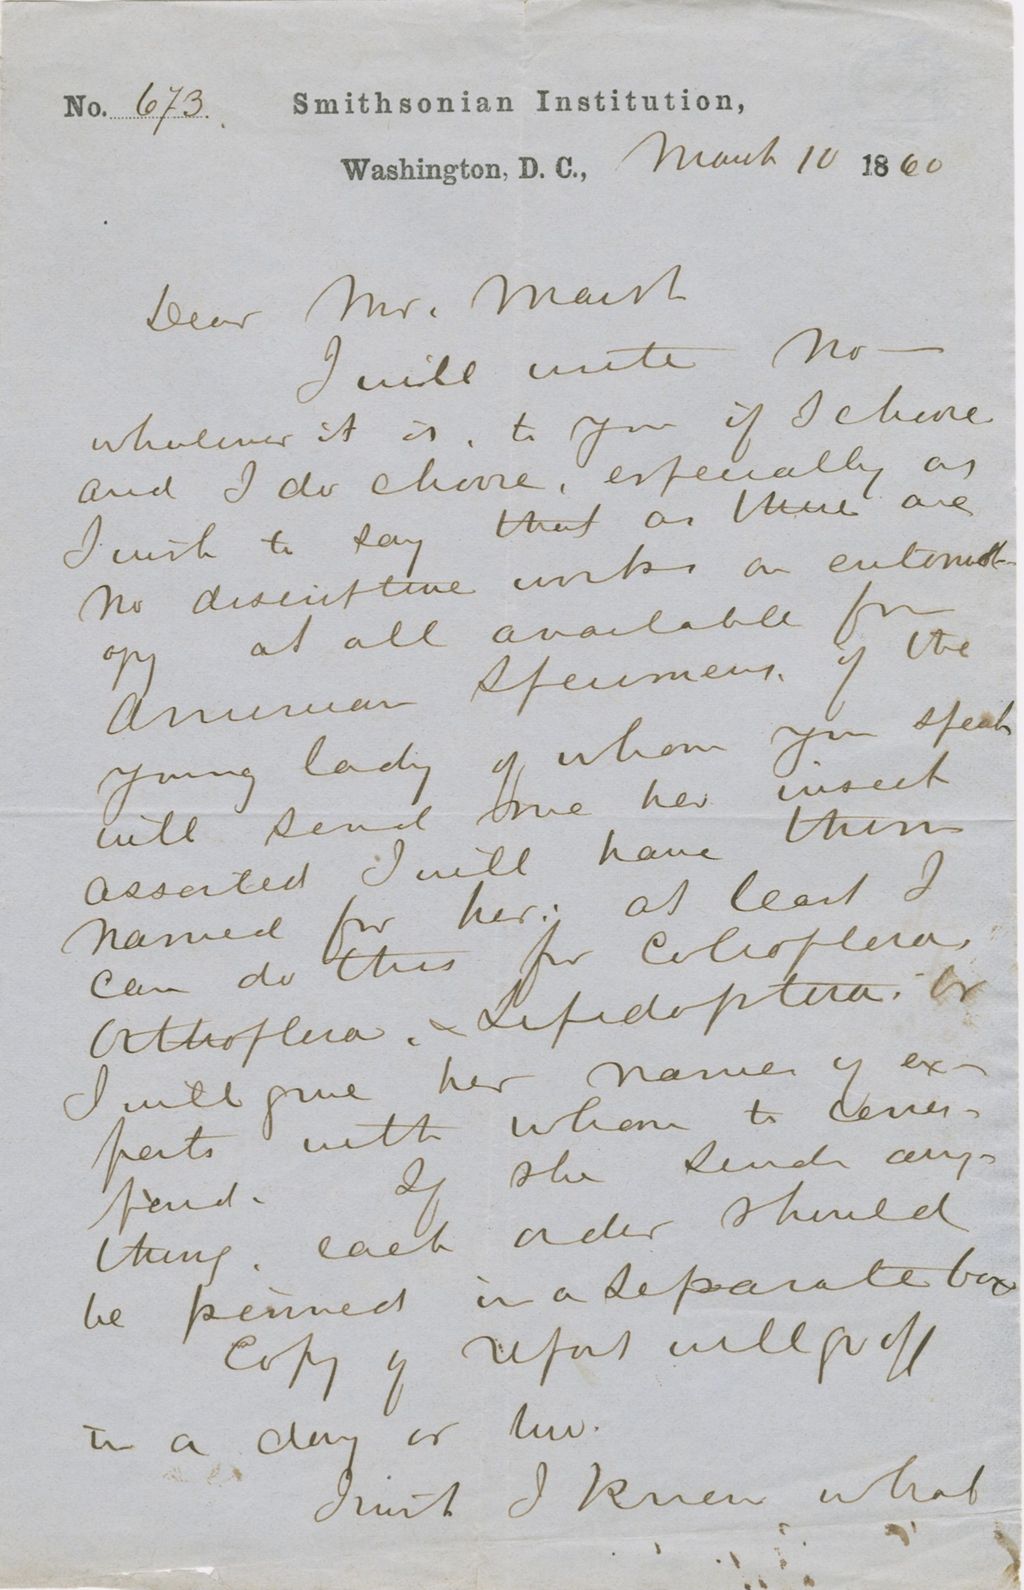 No. 673. Smithsonian Institution,
Washington, D. C., March 10 1860
Dear Mr. Marsh
I will write No—
whatever it is, to you if I choose
and I do choose, especially as
I wish to say that as there are
no descriptive works on entomol-
ogy at all available for
American specimens, if the
young lady of whom you speak
will send me her insect
assorted I will have them
named for her; at least I
can do this for Coleoptera,
Orthoptera, & Lepidoptera, or
I will give her names of ex-
perts with whom to corres-
pond. If she sends any-
thing, each order should
be pinned in a separate box
Copy of report will go off
in a day or two.
I wish I knew what